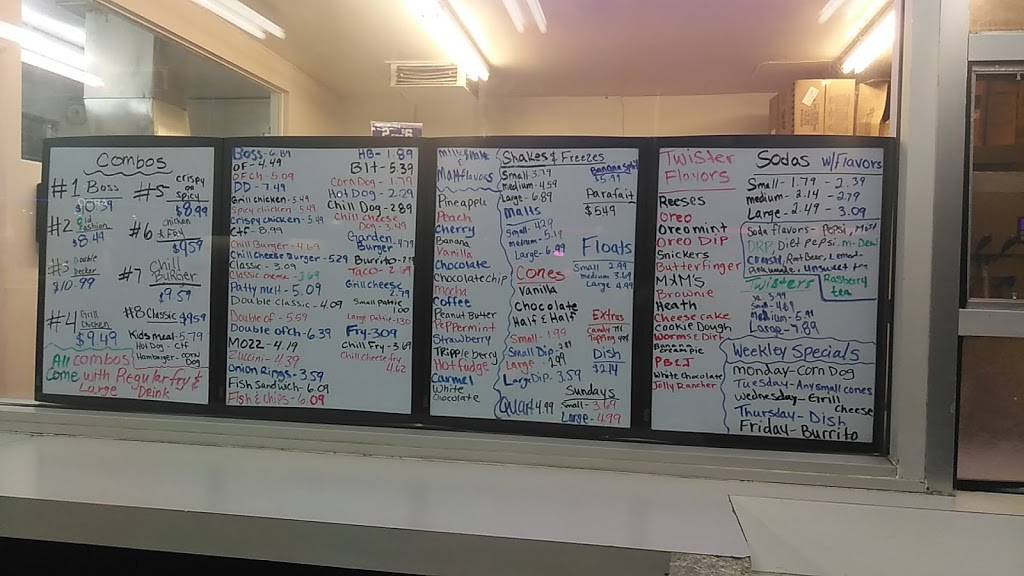 Combos
#1 Boss
$10.39
#5 crispy
or
spicy
$8.99
#2 Old
Fashion
$8.44
#6 chicken
& Fry
#3 Double
Decker
$10.99
#7 Chili
Burger
$9.59
#4 Grill
Chicken
$9.49
#8 Classic
Kids meal - 5.79
Hot Dog - CF
Hamburger - corn
Dog
All combos
come with Regular fry &
Large Drink
Boss - 6.89
OF - 4.49
OFch - 5.09
DD - 7.49
Grill chicken - 5.49
Spicy chicken - 5.49
Crispy chicken - 5.49
CtF - 8.99
Chili Burger - 4.69
Chili Cheese Burger - 5.29
Classic - 3.09
Patty melt - 5.09
Double classic - 4.09
Double of - 5.59
Double ofch - 6.39
MOZZ - 4.19
Zuccini - 4.39
Onion Rings - 3.59
Fish Sandwich - 6.09
Fish & Chips - 6.09
HB - 1.89
Blt - 5.39
Corn Dog - 1.79
Hot Dog - 2.29
Chili Dog - 2.89
Chili cheese
Dog - 3.49
Garden
Burger - 4.79
Burrito
Taco
Grill cheese
2.79
Small Pattie
1.00
Fry - 3.09
Chili Fry - 3.69
Chili cheese fry
4.62
Milkshake
&
Malt flavors
Pineapple
Peach
Cherry
Banana
Vanilla
Chocolate
Chocolate chip
Mocha
Coffee
Peanut Butter
Peppermint
Strawberry
Tripple berry
Hot fudge
Carmel
White
Chocolate
Shakes & Freezes
Small - 3.79
medium - 4.59
Large - 6.89
Malts
Small - 4.29
medium - 5.19
Large - 6.99
Cones
Vanilla
Chocolate
Half & Half
Small - 1.99
Small Dip
Large
Large Dip - 3.59
Quart 4.99
Banana Split
$5.99
Parafait
$5.49
Floats
Small 2.99
medium
Large 4.99
Extras
Candy
Topping
Dish
$2.14
Sundays
Small - 3.69
Large - 4.99
Twister
Flavors
Reeses
Oreo
Oreo mint
Oreo Dip
Snickers
Butterfinger
M&M'S
Brownie
Heath
Cheese cake
Cookie Dough
Worms & Dirt
PB & J
White Chocolate
Jolly Rancher
Sodas w/Flavors
Small - 1.79 - 2.39
medium - 2.14 - 2.79
Large - 2.49 - 3.09
Soda flavors - Pepsi, Mist
DRP, Diet pepsi, m-Dew
Crush, Root Beer, Lemon-
Raspberry
tea
Twisters
Large - 7.89
Weekley Specials
monday - Corn Dog
Tuesday - Any small cones
wednesday - Grill
Cheese
Thursday - Dish
Friday - Burrito